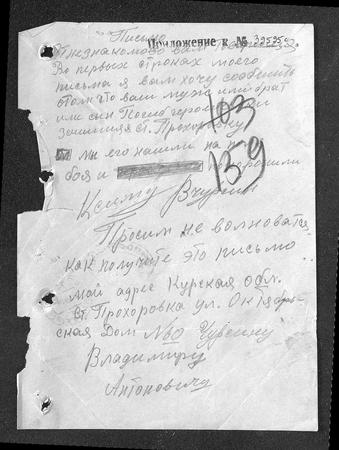 Письмо
Приложение к № 32525с.
Незнакомово вам
Во первых строках моего
письма я вам хочу сообщить
отом что ваш муж или брат
или сын Погиб героем
зощищая ст. Прохоровку
103
мы его нашли на
боя и
139
Просим не волноватся
как получите это письмо
мой адрес Курская обл.
ст. Прохоровка ул. Октябрь-
ская Дом №60 Чурсину
Владимиру
Антоновичу